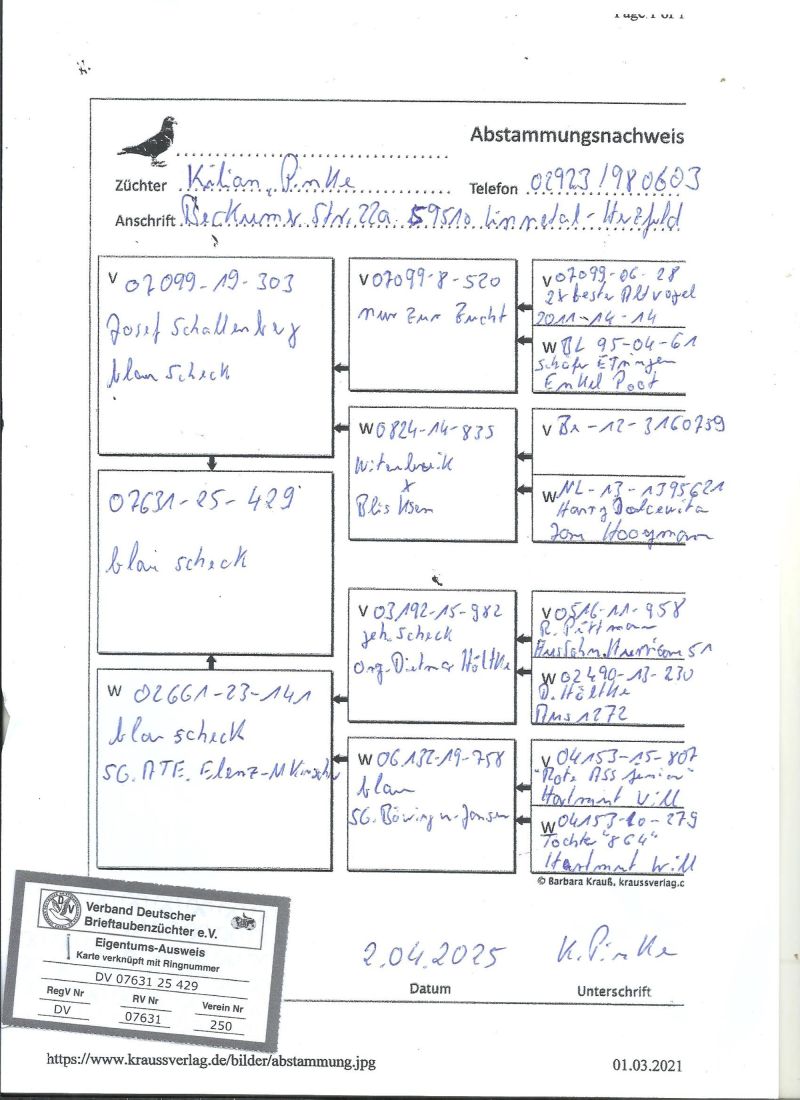 Page 1 of 1
Abstammungsnachweis
Züchter Kilian Pinke Telefon 02923/980603
Anschrift Beckumer Str. 22a 59510 Linnetal-Herzfeld
V 07099-19-303
Josef Schallenberg
blau scheck
07631-25-429
blau scheck
W 02661-23-141
blau scheck
SG. ATE. Elenz-M
V 07099-8-520
nur zur Zucht
W 0824-14-835
x
V 03192-15-982
geh. scheck
org. Dietmar Höltke
W 06132-19-758
blau
SG. Böwing u. Jansen
V 07099-06-28
2x bester Altvogel
2011-14-14
W BL 95-04-61
Schäfer Ettringen
Enkel Poot
V Be-12-3160759
W NL-13-1395621
Harry Dolcevita
Jan Hooymans
V 0516-11-958
R. Püttmann
51
W 02490-13-230
D. Höltke
1272
V 04153-15-807
"Rote Ass Junior"
Hartmut Will
W 04153-10-279
Tochter "864"
Hartmut Will
© Barbara Krauß, kraussverlag.c
Verband Deutscher
Brieftaubenzüchter e.V.
Eigentums-Ausweis
Karte verknüpft mit Ringnummer
DV 07631 25 429
RegV Nr RV Nr Verein Nr
DV 07631 250
2.04.2025 K. Pinke
Datum Unterschrift
https://www.kraussverlag.de/bilder/abstammung.jpg 01.03.2021